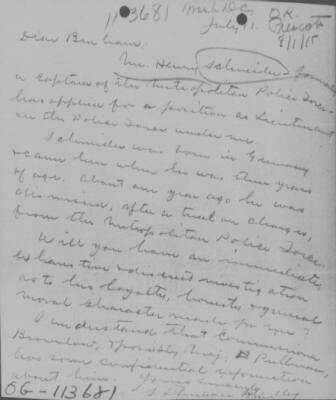 113681
Wash DC
O.K.
July 11.
8/1/18
Dear Bingham.
Mr. Henry Schneider, formerly
a Captain of the Metropolitan Police Force
has applied for a position as Lieutenant
on the Police Force under me.
Schneider was born in Germany
& came here when he was three years
of age. About one year ago he was
dismissed, after a trial on charges,
from the Metropolitan Police Force.
Will you have an immediate,
exhaustive & discreet investigation
as to his loyalty, honesty & general
moral character made for me?
I understand that Commissioner
Brownlow, & possibly Maj. Pullman,
has some confidential information
about him.
Yours sincerely
OG-113681